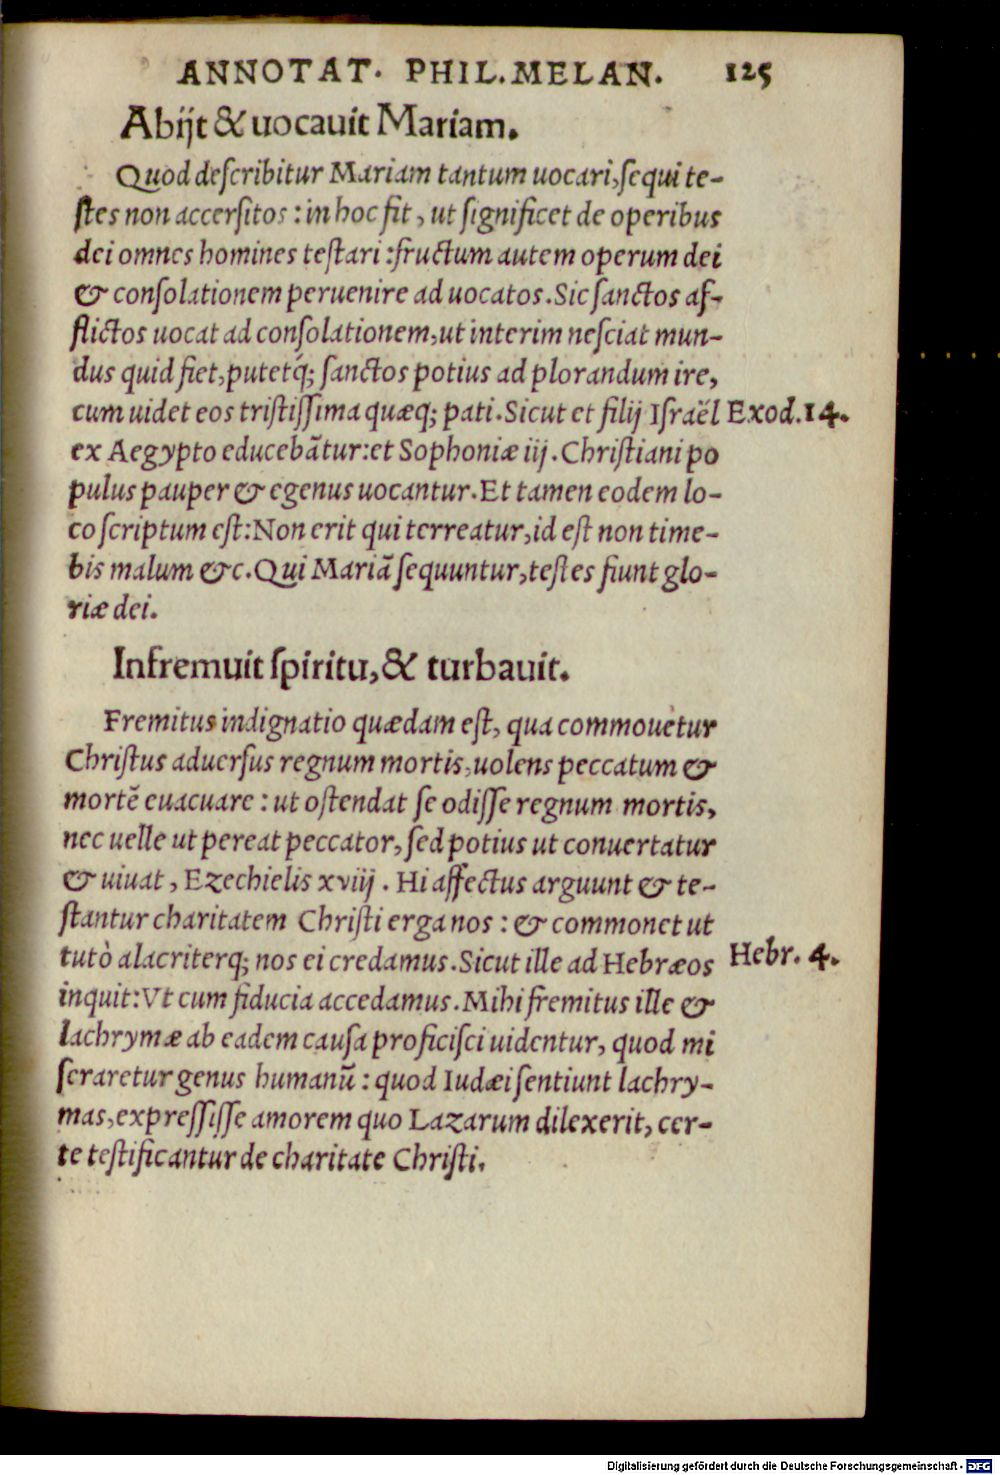 ANNOTAT. PHIL. MELAN. 125
Abijt & uocauit Mariam.
Quod deſcribitur Mariam tantum uocari, ſequi te-
ſtes non accerſitos : in hoc fit, ut ſignificet de operibus
dei omnes homines teſtari : fructum autem operum dei
& conſolationem peruenire ad uocatos. Sic ſanctos af-
flictos uocat ad conſolationem, ut interim neſciat mun-
dus quid fiet, putetq́; ſanctos potius ad plorandum ire,
cum uidet eos triſtiſſima quæq; pati. Sicut et filij Iſraël Exod. 14.
ex Aegypto educebãtur: et Sophoniæ iij. Chriſtiani po
pulus pauper & egenus uocantur. Et tamen eodem lo-
co ſcriptum eſt: Non erit qui terreatur, id eſt non time-
bis malum &c. Qui Mariã ſequuntur, teſtes fiunt glo-
riæ dei.
Infremuit ſpiritu, & turbauit.
Fremitus indignatio quædam eſt, qua commouetur
Chriſtus aduerſus regnum mortis, uolens peccatum &
mortẽ euacuare : ut oſtendat ſe odiſſe regnum mortis,
nec uelle ut pereat peccator, ſed potius ut conuertatur
& uiuat, Ezechielis xviij. Hi affectus arguunt & te-
ſtantur charitatem Chriſti erga nos : & commonet ut
tutò alacriterq; nos ei credamus. Sicut ille ad Hebræos Hebr. 4.
inquit: Vt cum fiducia accedamus. Mihi fremitus ille &
lachrymæ ab eadem cauſa proficiſci uidentur, quod mi
ſeraretur genus humanũ : quod Iudæi ſentiunt lachry-
mas, expreſſiſſe amorem quo Lazarum dilexerit, cer-
te teſtificantur de charitate Chriſti.
Digitalisierung gefördert durch die Deutsche Forschungsgemeinschaft - DFG